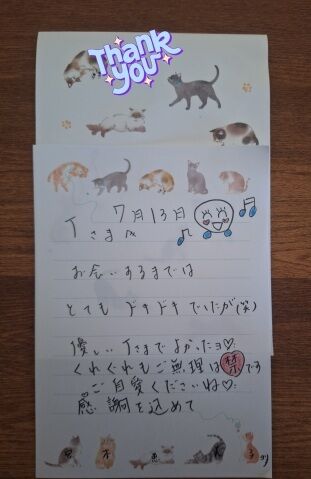 Thank
you
7月13日
Tさまへ
お会いするまでは
とても ドキドキでしたが(笑)
優しいTさまでよかったヨ♡
くれぐれもご無理は禁です
ご自愛くださいね♡
感謝を込めて